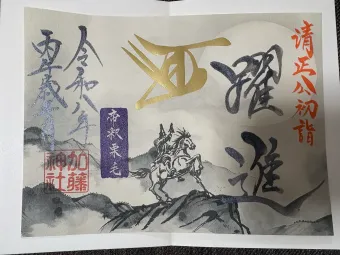 清正公初詣
躍進
帝釈栗毛
令和八年
丙午歳
加藤神社